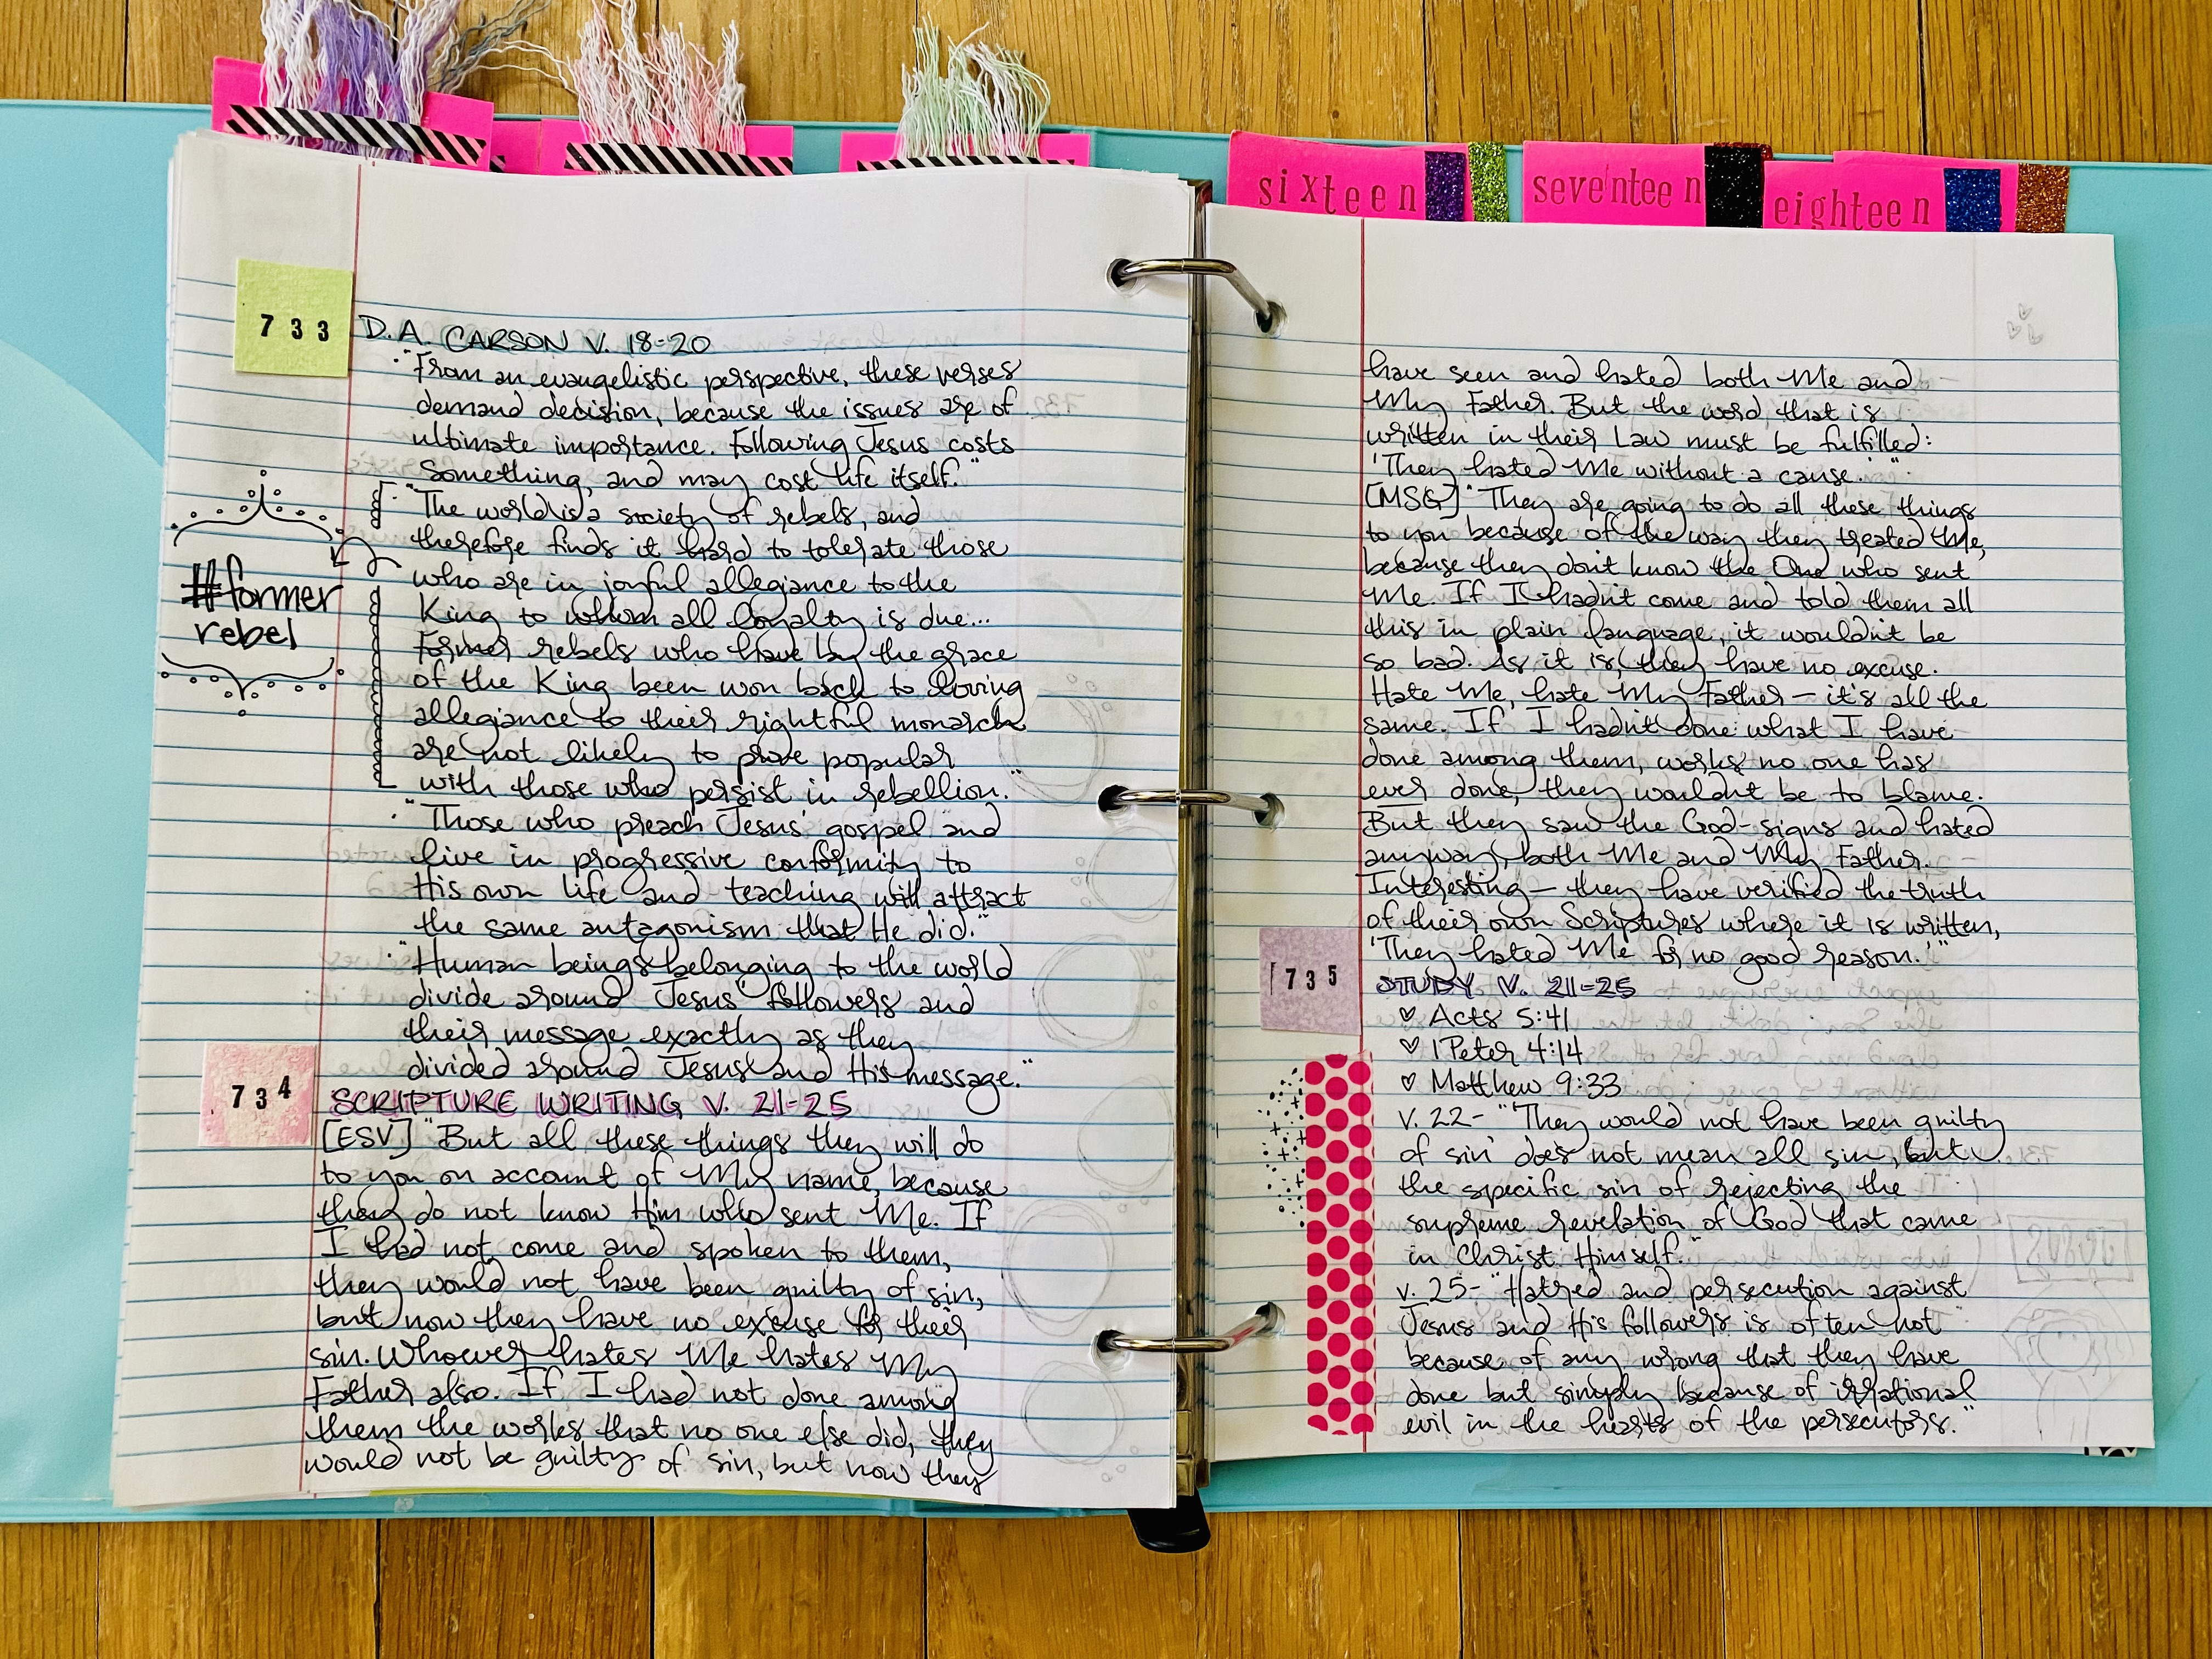 sixteen
seventeen
eighteen
733
D.A. CARSON V. 18-20
"From an evangelistic perspective, these verses
demand decision, because the issues are of
ultimate importance. Following Jesus costs
something, and may cost life itself."
"The world is a society of rebels, and
therefore finds it hard to tolerate those
who are in joyful allegiance to the
King to whom all loyalty is due...
Former rebels who have by the grace
of the King been won back to loving
allegiance to their rightful monarch
are not likely to prove popular
with those who persist in rebellion."
#former
rebel
"Those who preach Jesus' gospel and
live in progressive conformity to
His own life and teaching will attract
the same antagonism that He did."
"Human beings belonging to the world
divide around Jesus' followers and
their message exactly as they
divided around Jesus and His message."
734
SCRIPTURE WRITING V. 21-25
[ESV] "But all these things they will do
to you on account of My name, because
they do not know Him who sent Me. If
I had not come and spoken to them,
they would not have been guilty of sin,
but now they have no excuse for their
sin. Whoever hates Me hates My
Father also. If I had not done among
them the works that no one else did, they
would not be guilty of sin, but now they
have seen and hated both Me and
My Father. But the word that is
written in their Law must be fulfilled:
'They hated Me without a cause.'"
[MSG] "They are going to do all these things
to you because of the way they treated Me,
because they don't know the One who sent
Me. If I hadn't come and told them all
this in plain language, it wouldn't be
so bad. As it is, they have no excuse.
Hate Me, hate My Father — it's all the
same. If I hadn't done what I have
done among them, works no one has
ever done, they wouldn't be to blame.
But they saw the God-signs and hated
anyway, both Me and My Father.
Interesting — they have verified the truth
of their own Scriptures where it is written,
'They hated Me for no good reason.'"
735
STUDY V. 21-25
♡ Acts 5:41
♡ 1 Peter 4:14
♡ Matthew 9:33
v. 22- "'They would not have been guilty
of sin' does not mean all sin, but
the specific sin of rejecting the
supreme revelation of God that came
in Christ Himself."
v. 25- "Hatred and persecution against
Jesus and His followers is often not
because of any wrong that they have
done but simply because of irrational
evil in the hearts of the persecutors."